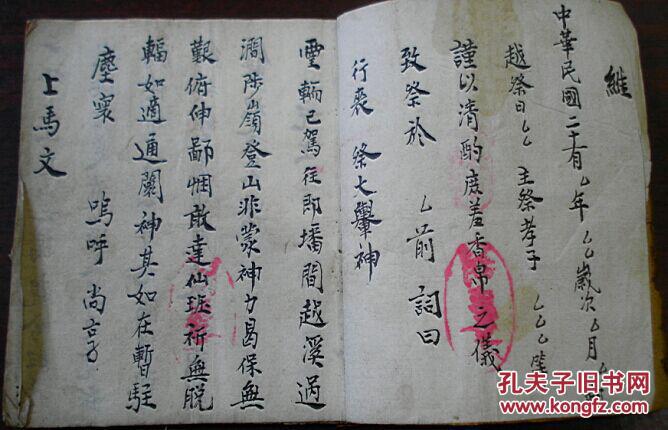 維
中華民國二十有乙年乙乙歲次乙月乙
越祭日乙乙 主祭孝子 乙乙乙
謹以清酌庶羞香帛之儀
致祭於 乙前 詞曰
行喪 祭大轝神
靈輀已駕往即墦間越溪過
澗陟嶺登山非蒙神力曷保無
艱俯伸鄙悃敢達仙班祈無脱
輻如適通闤神其如在暫駐
塵寰 嗚呼 尚
上馬文
孔夫子旧书网
www.kongfz.com